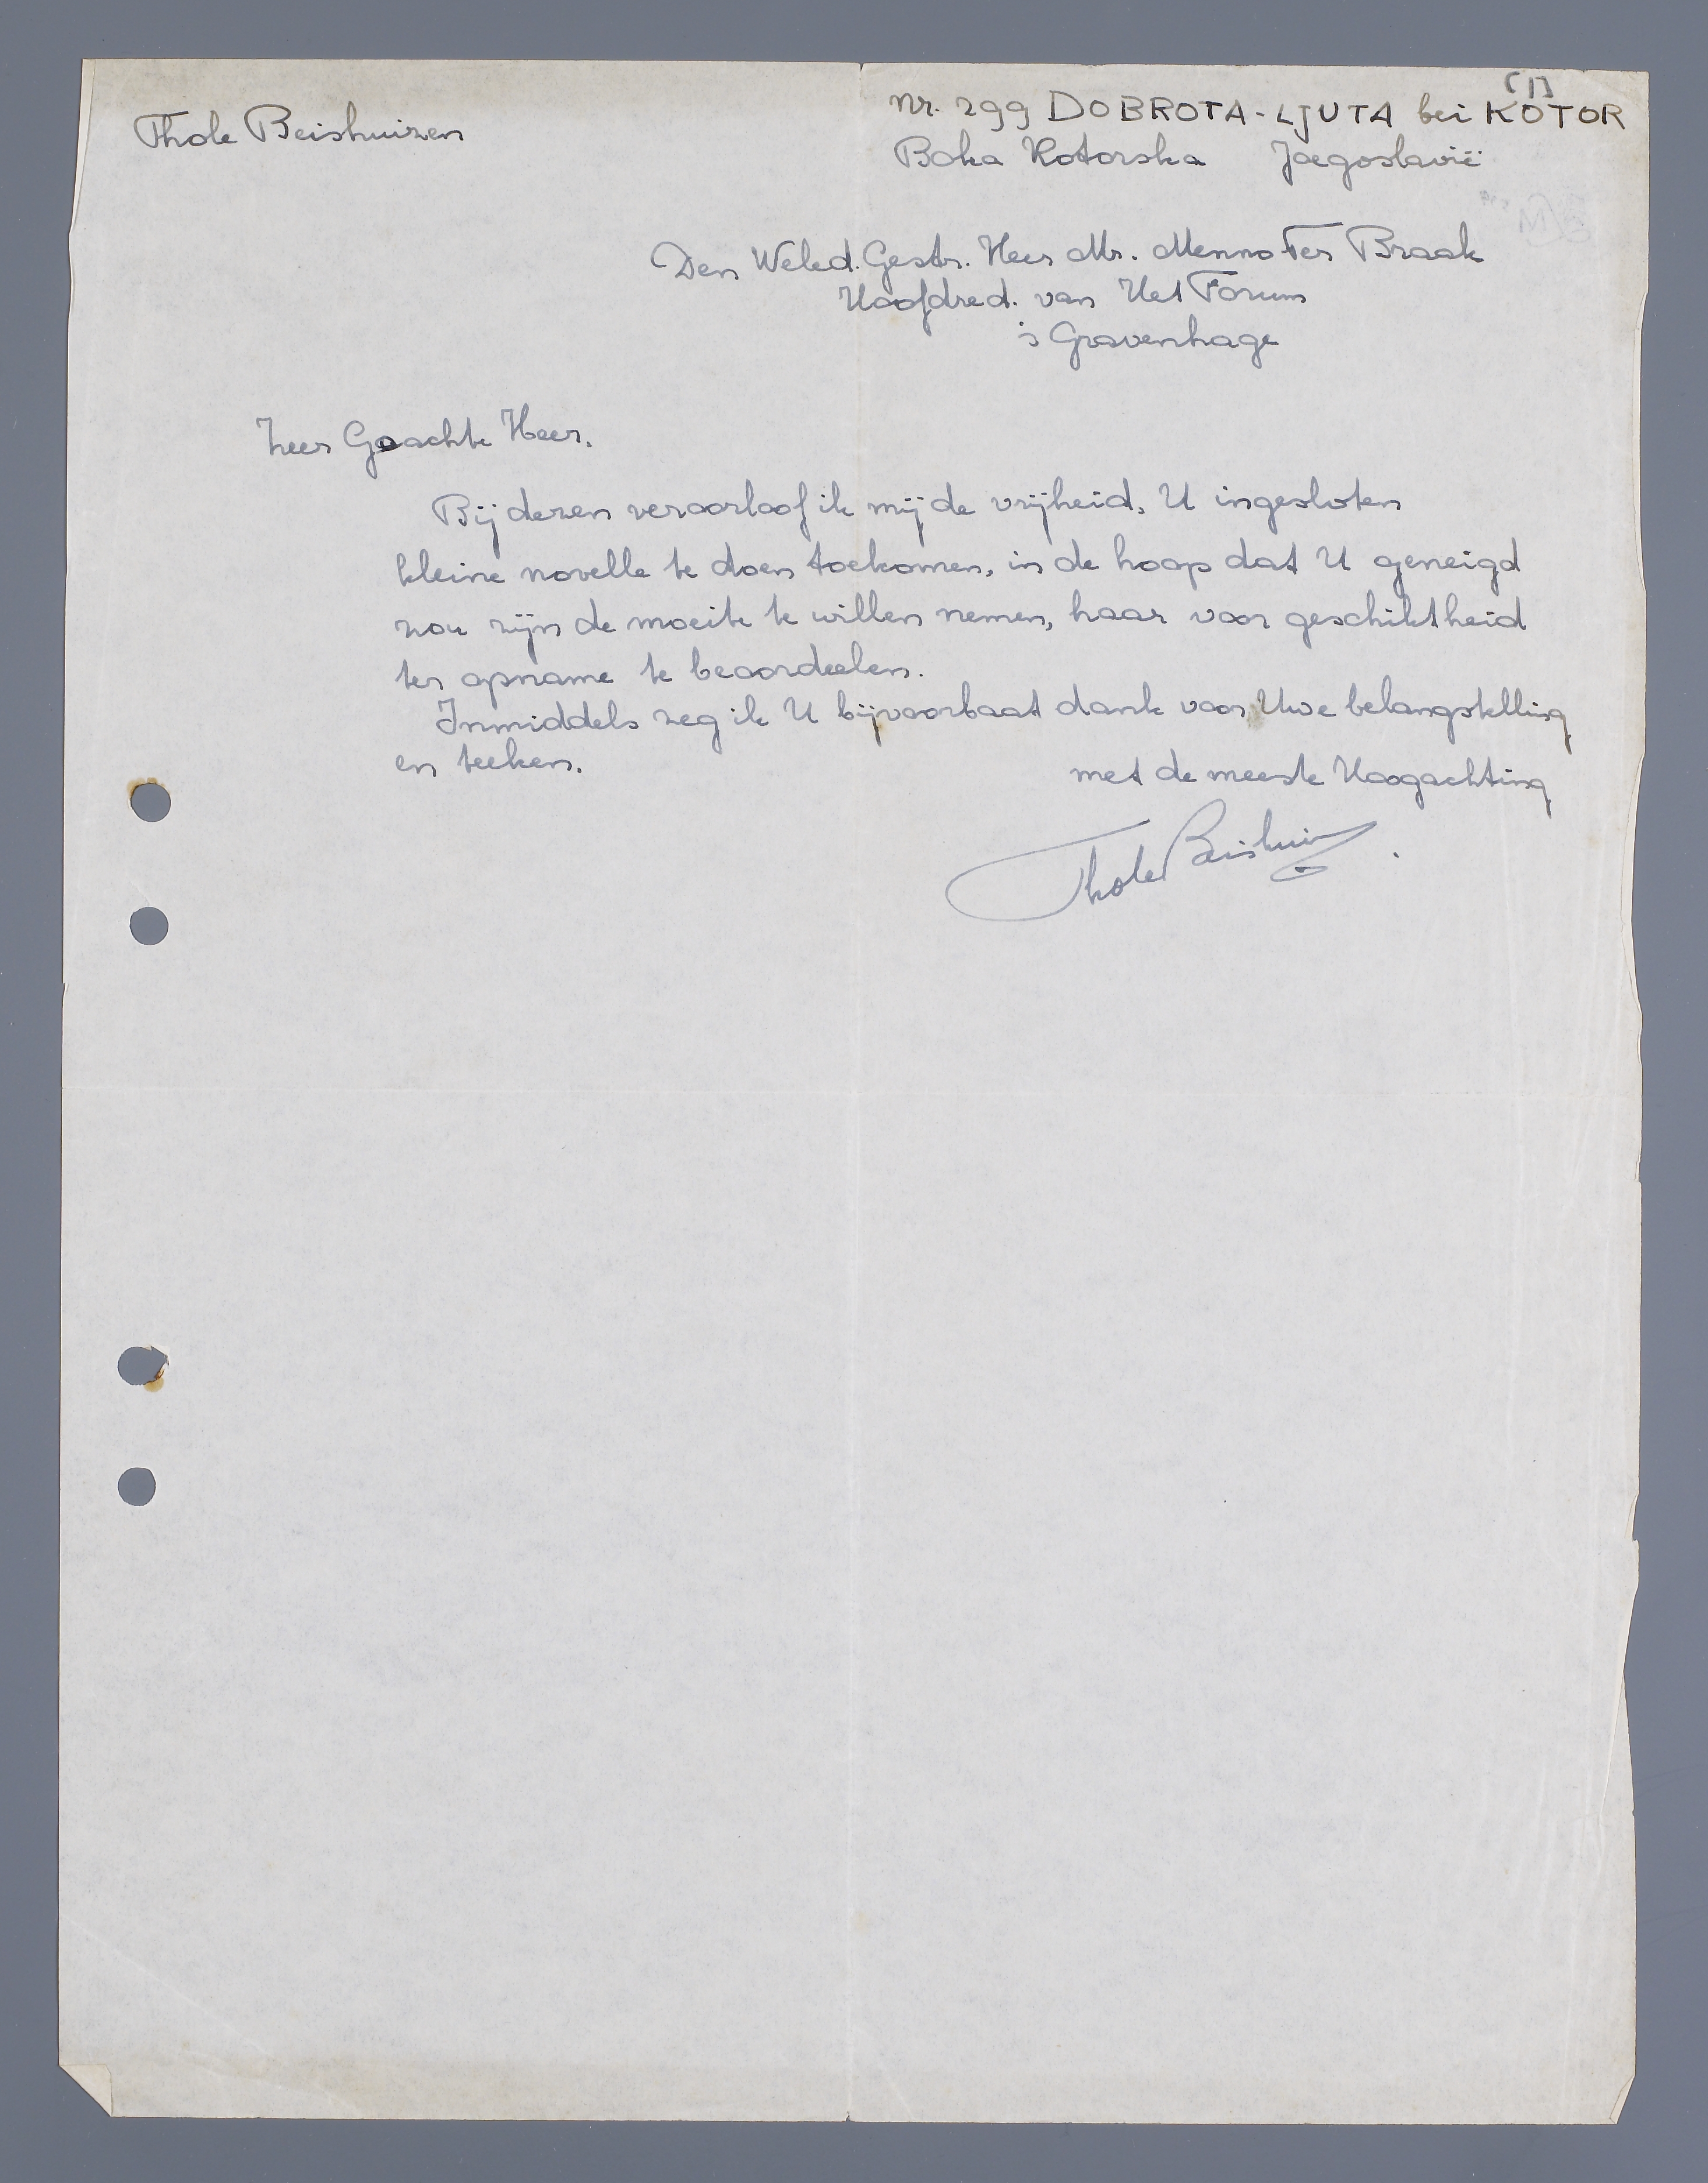 [1]
Thole Beishuizen
Nr. 299 DOBROTA-LJUTA bei KOTOR
Boka Kotorska Joegoslavië
Den Weled. Gestr. Heer Mr. Menno Ter Braak
Hoofdred. van Het Forum
's Gravenhage
Zeer Geachte Heer.
Bij dezen veroorloof ik mij de vrijheid, U ingesloten
kleine novelle te doen toekomen, in de hoop dat U geneigd
zou zijn de moeite te willen nemen, haar voor geschiktheid
ter opname te beoordeelen.
Inmiddels zeg ik U bijvoorbaat dank voor Uwe belangstelling
en teeken.
met de meeste Hoogachting
Thole Beishuizen.